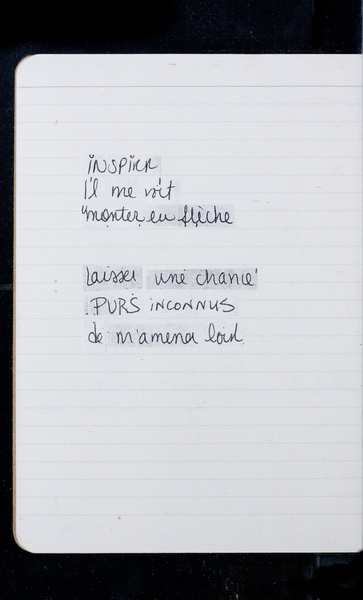 inspirer
il me voit
monter en flèche
laisser une chance
PURS INCONNUS
de m'amener loin